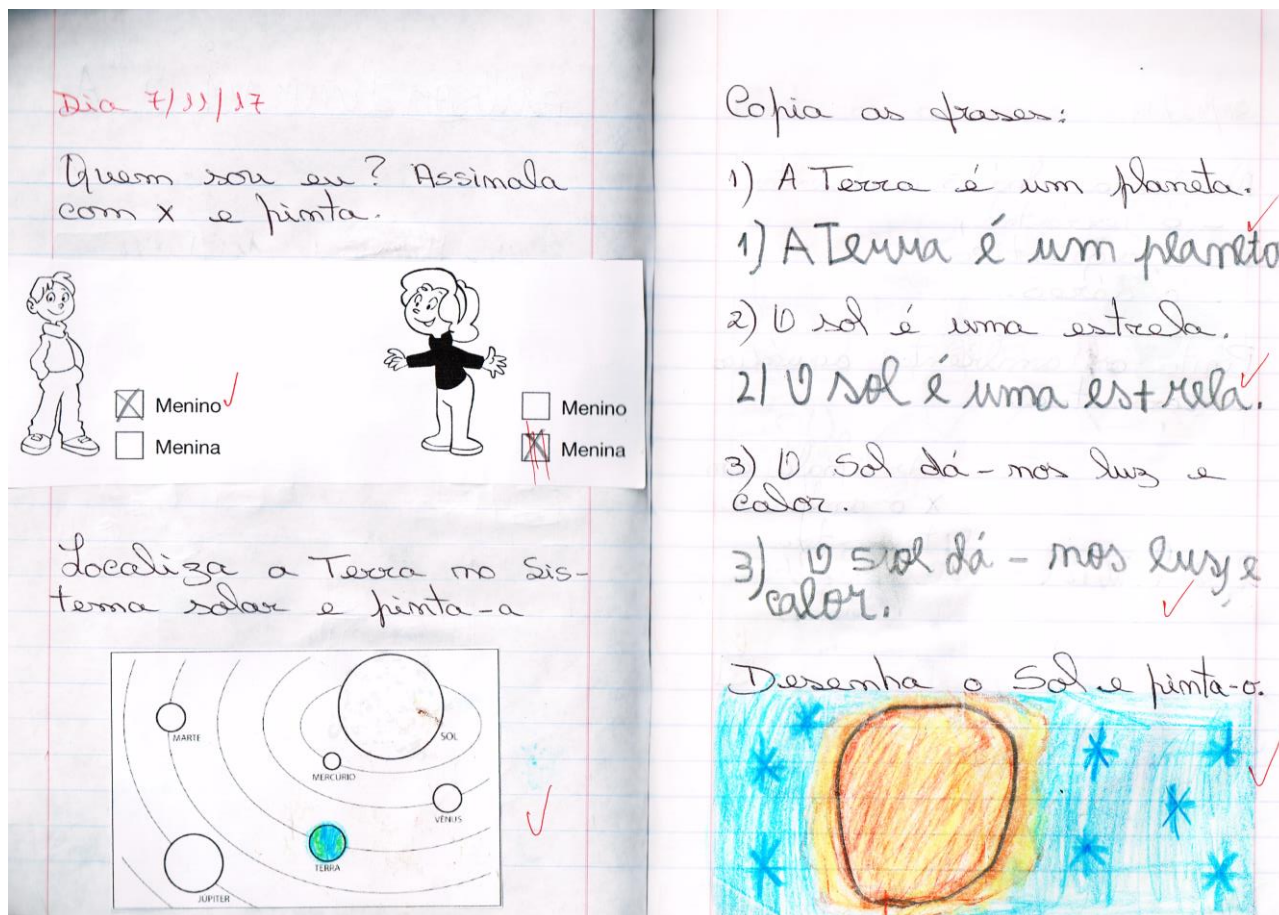 Dia 7/11/17
Quem sou eu? Assinala
com x e pinta.
Menino
Menina
Menino
Menina
Localiza a Terra no Sis-
tema solar e pinta-a
MARTE
SOL
MERCÚRIO
VÉNUS
TERRA
JÚPITER
Copia as frases:
1) A Terra é um planeta.
1) A Terra é um planeta
2) O sol é uma estrela.
2) O sol é uma estrela.
3) O Sol dá-nos luz e
calor.
3) O Sol dá-nos luz e
calor.
Desenha o Sol e pinta-o.